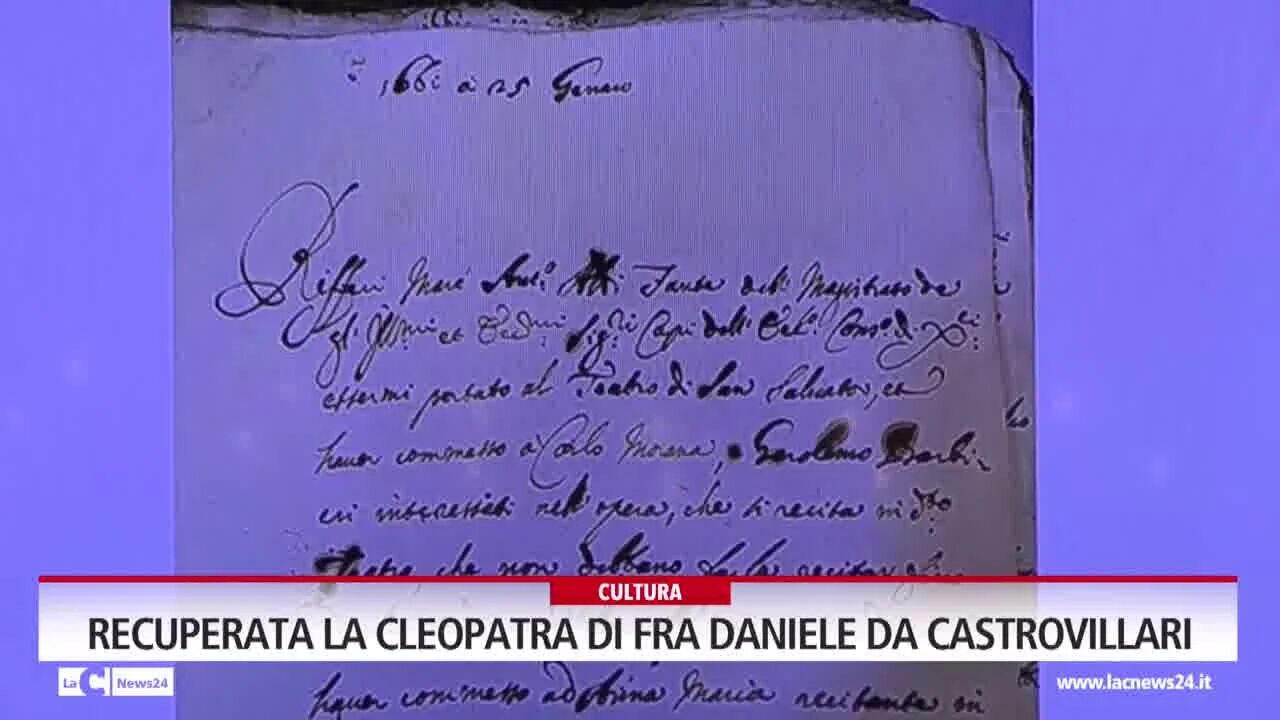 1661 à 25 Genaro
Rifferi Marc' Ant.º Fante dell' Magistrato de
gl' Ill.mi et Ecc.mi Sig.ri Capi dell' Ecc.º Cons.º di X.ci
essermi portato al Teatro di San Salvator, et
hauer commesso à Carlo Morana, e Gerolemo Barbi-
eri interessati nell' opera, che si recita in d.to
Teatro che non debbano farla recitar
CULTURA
RECUPERATA LA CLEOPATRA DI FRA DANIELE DA CASTROVILLARI
LaC News24
www.lacnews24.it
hauer commesso ad Anna Maria recitante in